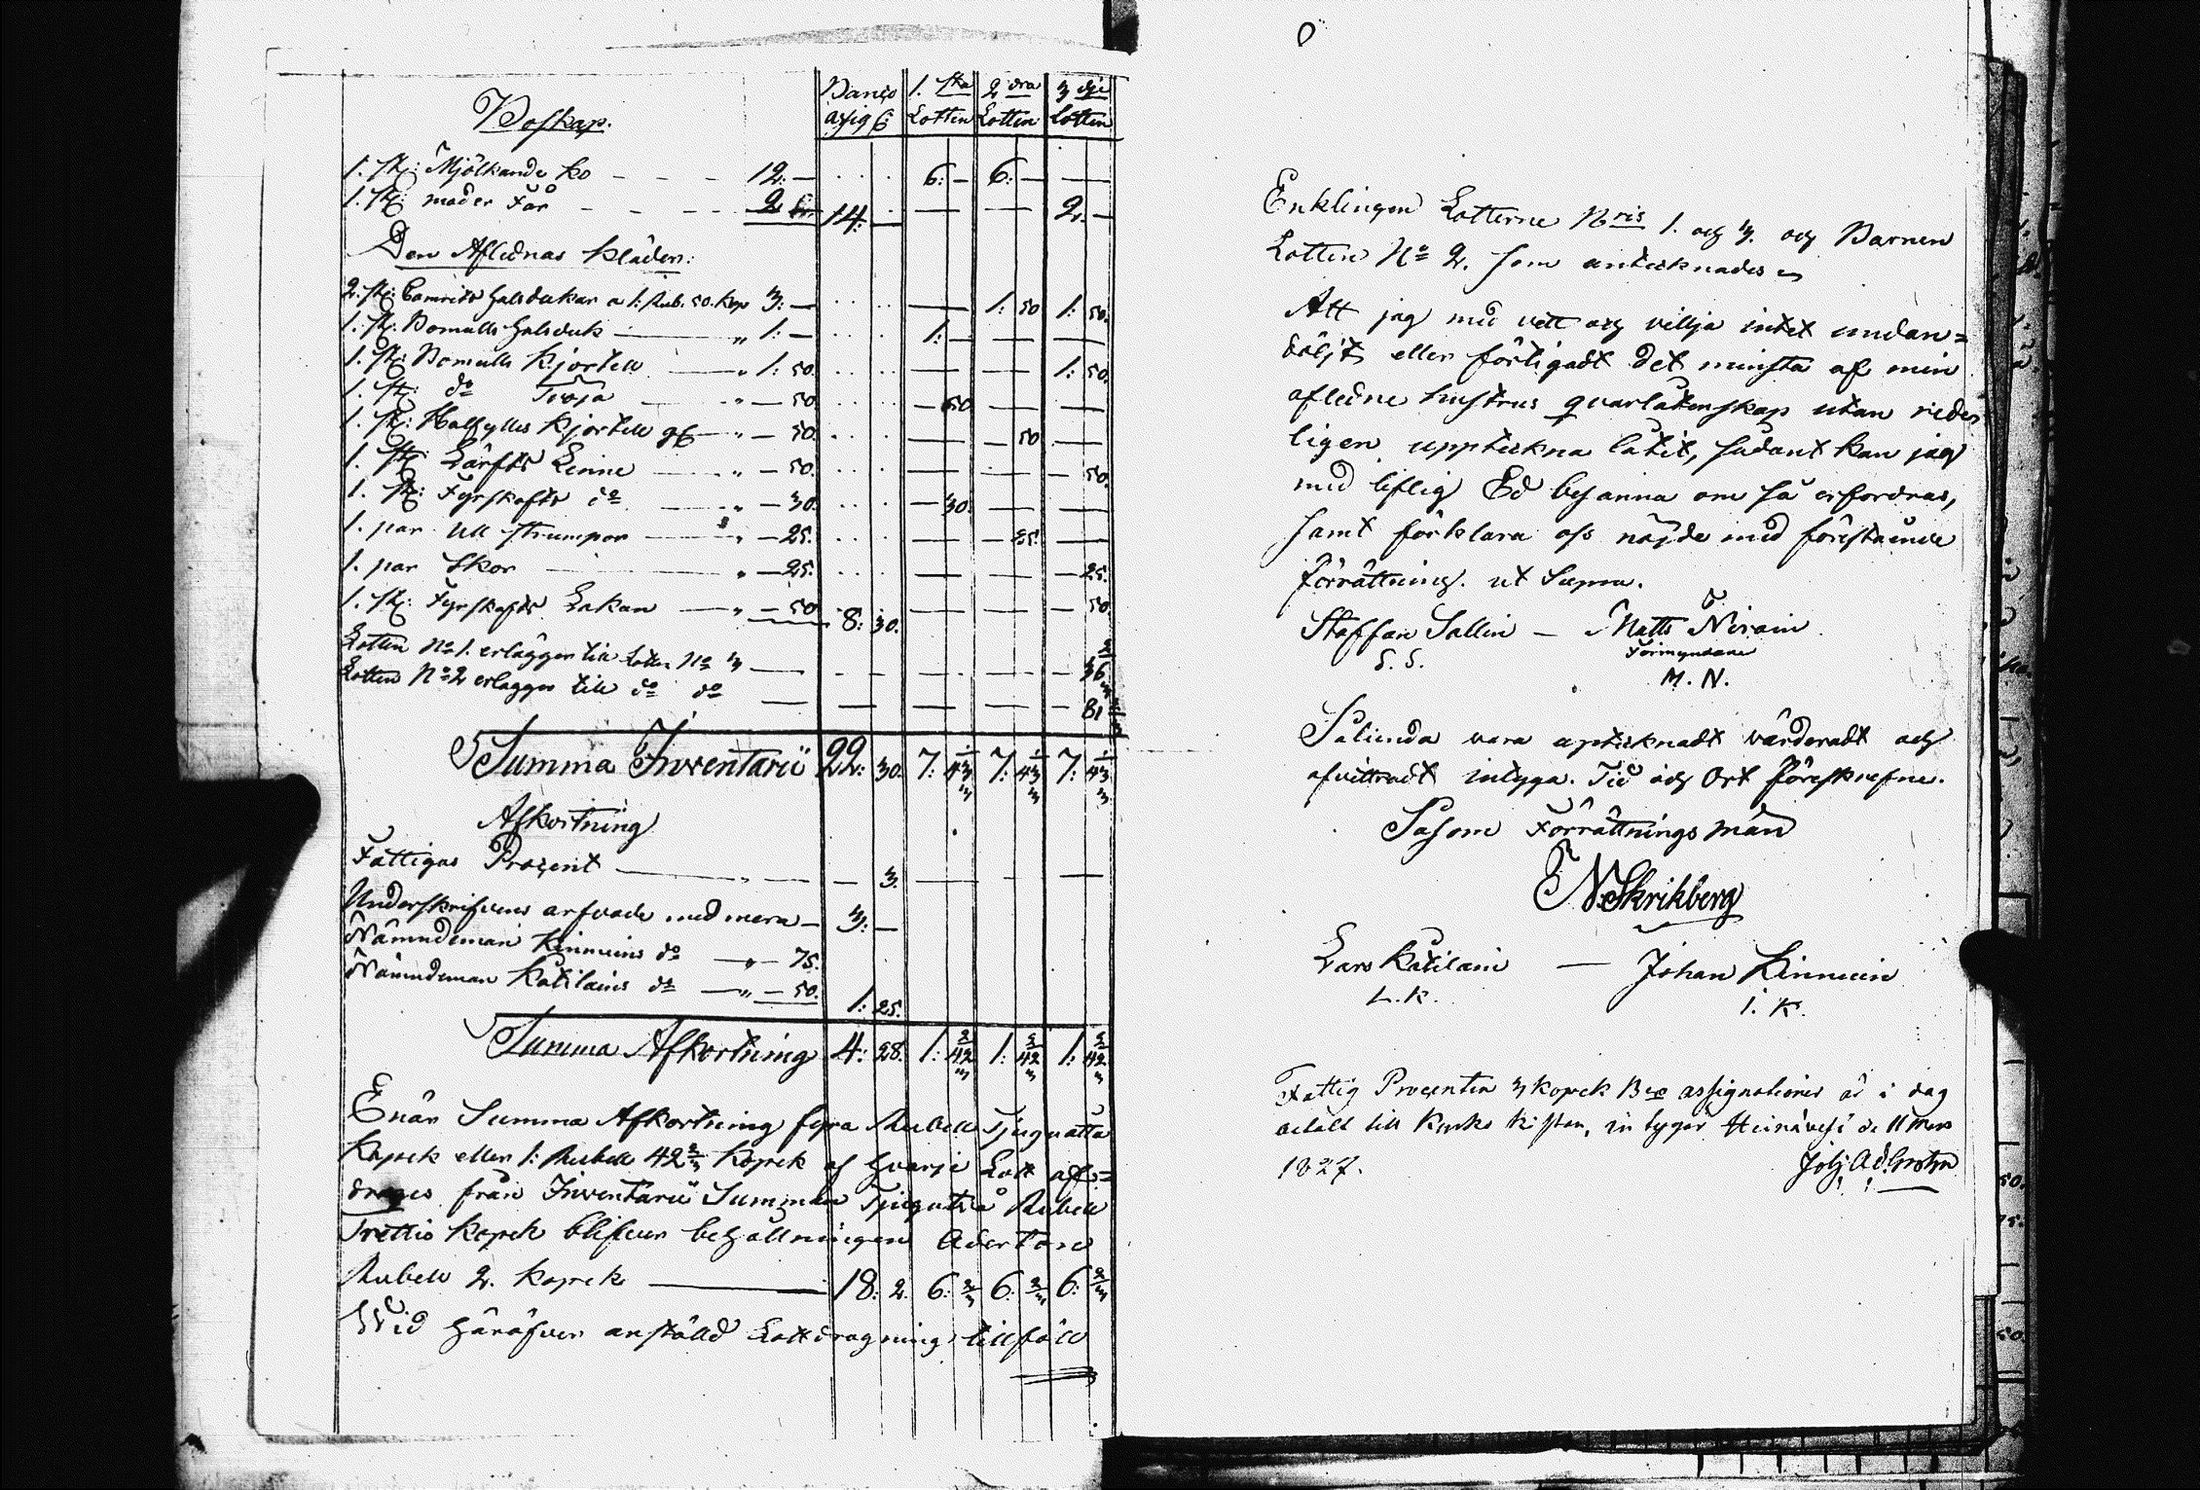 Banco 1.sta 2dra 3dje
assig: Lotten Lotten Lotten
Boskap.
1. st: Mjölkande ko — — — 12: — . . . 6: — 6: — —
1. st: moder Får — — — 2. — 14: — — — 2: —
Den Aflednas Kläder:
2. st: Camrids halsdukar a 1: Rub. 50. kop 3: — — 1: 50 1: 50.
1. st: Bomulls halsduk — „ 1: — 1: — — —
1. st: Bomulls Kjortell — „ 1: 50. — — 1: 50.
1. st: do Tröja — „ — 50. — 50. — —
1. st: Halfylles Kjortell — „ — 50. — — 50 —
1. st: Lärfts Linne — „ — 50. — — — 50.
1. st: Fyrskafts do — „ — 30. — 30. — —
1. par Ull strumpor — „ — 25. — — 25. —
1. par Skor — „ — 25. — — — 25.
1. st: Fyrskafts Lakan — „ — 50. 8: 30. — — — 50.
Lotten No 1. erlägger till Lotten No 3 — — — — 36 2/3
Lotten No 2 erlägger till do do — — — — 81 2/3
Summa Inventarii 22: 30. 7: 43 1/3 7: 43 1/3 7: 43 1/3
Afkortning
Fattigas Procent — „ — — 3. — — —
Underskrifvens arfvode med mera — 3: —
Nämndeman Kinnuins do — „ — 75.
Nämndeman Katilains do — „ — 50. 1: 25.
Summa Afkortning 4: 28. 1: 42 2/3 1: 42 2/3 1: 42 2/3
Enär Summa Afkortning fyra Rubell Tjuguåtta
Kopek eller 1: Rubell 42 2/3 Kopek af hvarje Lott afs=
drages från Inventarii Summan Tjugutvå Rubell
Trettio Kopek blifver behållningen Aderton
Rubell 2. Kopek — 18: 2. 6: 2/3 6: 2/3 6: 2/3
Wid häröfver anställd Lottdragning tillföll
Enklingen Lotterne Nris 1. och 3. och Barnen
Lotten No 2. som antecknades
Att jag med vett och vilja intet undan=
döljt eller förtigadt det minsta af min
afledne hustrus qvarlåtenskap utan rede=
ligen uppteckna låtit, sådant kan jag
med liflig Ed besanna om så erfordras,
samt förklara oss nöjde med förestående
förrättning. ut Supra.
Staffan Sallin — Matts Nirain
Förmyndare
S. S. M. N.
Sålunda vara uptecknadt värderadt och
afvittradt intyga. Tid och Ort föreskrefne.
Såsom Förrättnings män
N Skrikberg
Lars Katilain — Johan Kinnuin
L. K. I. K.
Fattig Procenten 3 kopek Bco assignationer är i dag
betalt till Kyrko Kistan, intygar Heinävesi de 11 Mars
1827. Joh: Ad: Grohn